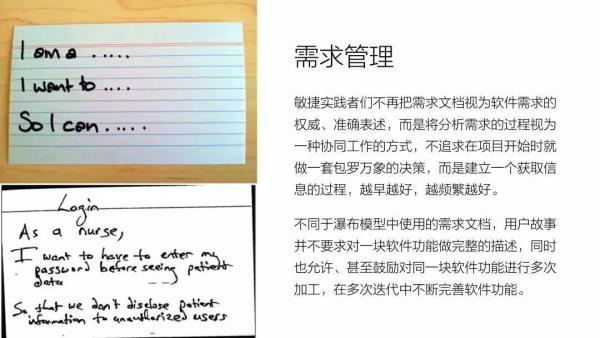 I am a .....
I want to ....
So I can .....
Login
As a nurse,
I want to have to enter my
password before seeing patient
data
So that we don't disclose patient
information to unauthorized users
需求管理
敏捷实践者们不再把需求文档视为软件需求的
权威、准确表述，而是将分析需求的过程视为
一种协同工作的方式，不追求在项目开始时就
做一套包罗万象的决策，而是建立一个获取信
息的过程，越早越好，越频繁越好。
不同于瀑布模型中使用的需求文档，用户故事
并不要求对一块软件功能做完整的描述，同时
也允许、甚至鼓励对同一块软件功能进行多次
加工，在多次迭代中不断完善软件功能。